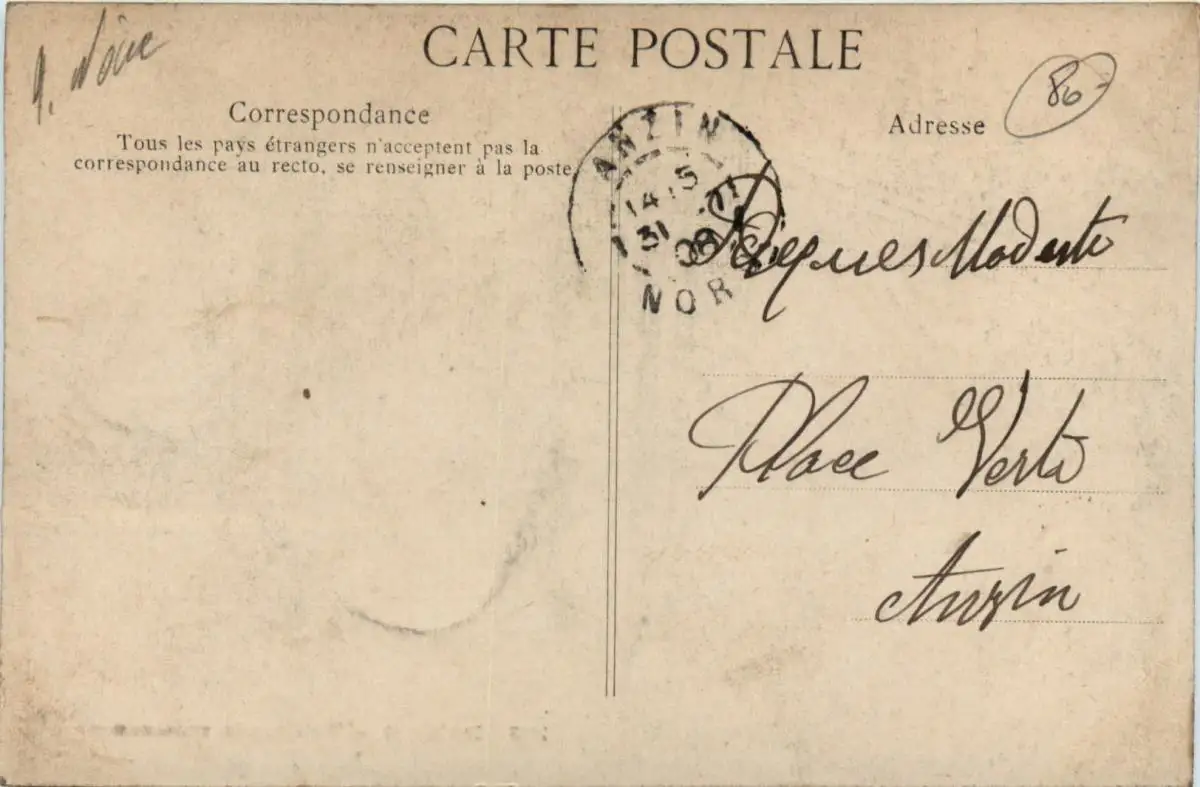 CARTE POSTALE
Correspondance
Tous les pays étrangers n'acceptent pas la
correspondance au recto, se renseigner à la poste
ANZIN
14 5
31
08
NOR
Adresse
86
Modeste
Place Verte
Anzin